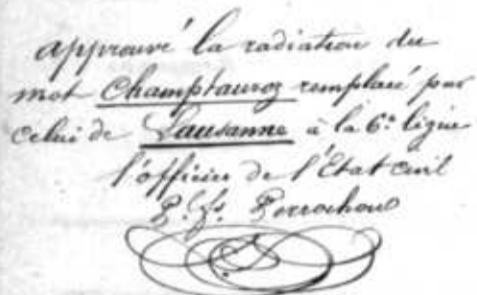 approuvé la radiation du
mot Champtauroz remplacé par
celui de Lausanne à la 6e ligne
l'officier de l'Etat civil
Perrochon